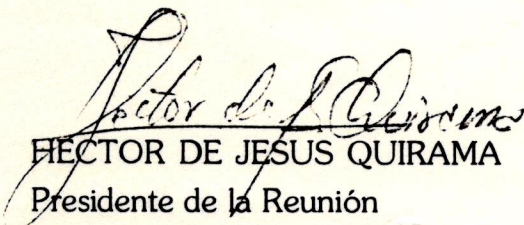 Hector de J Quirama
HECTOR DE JESUS QUIRAMA
Presidente de la Reunión